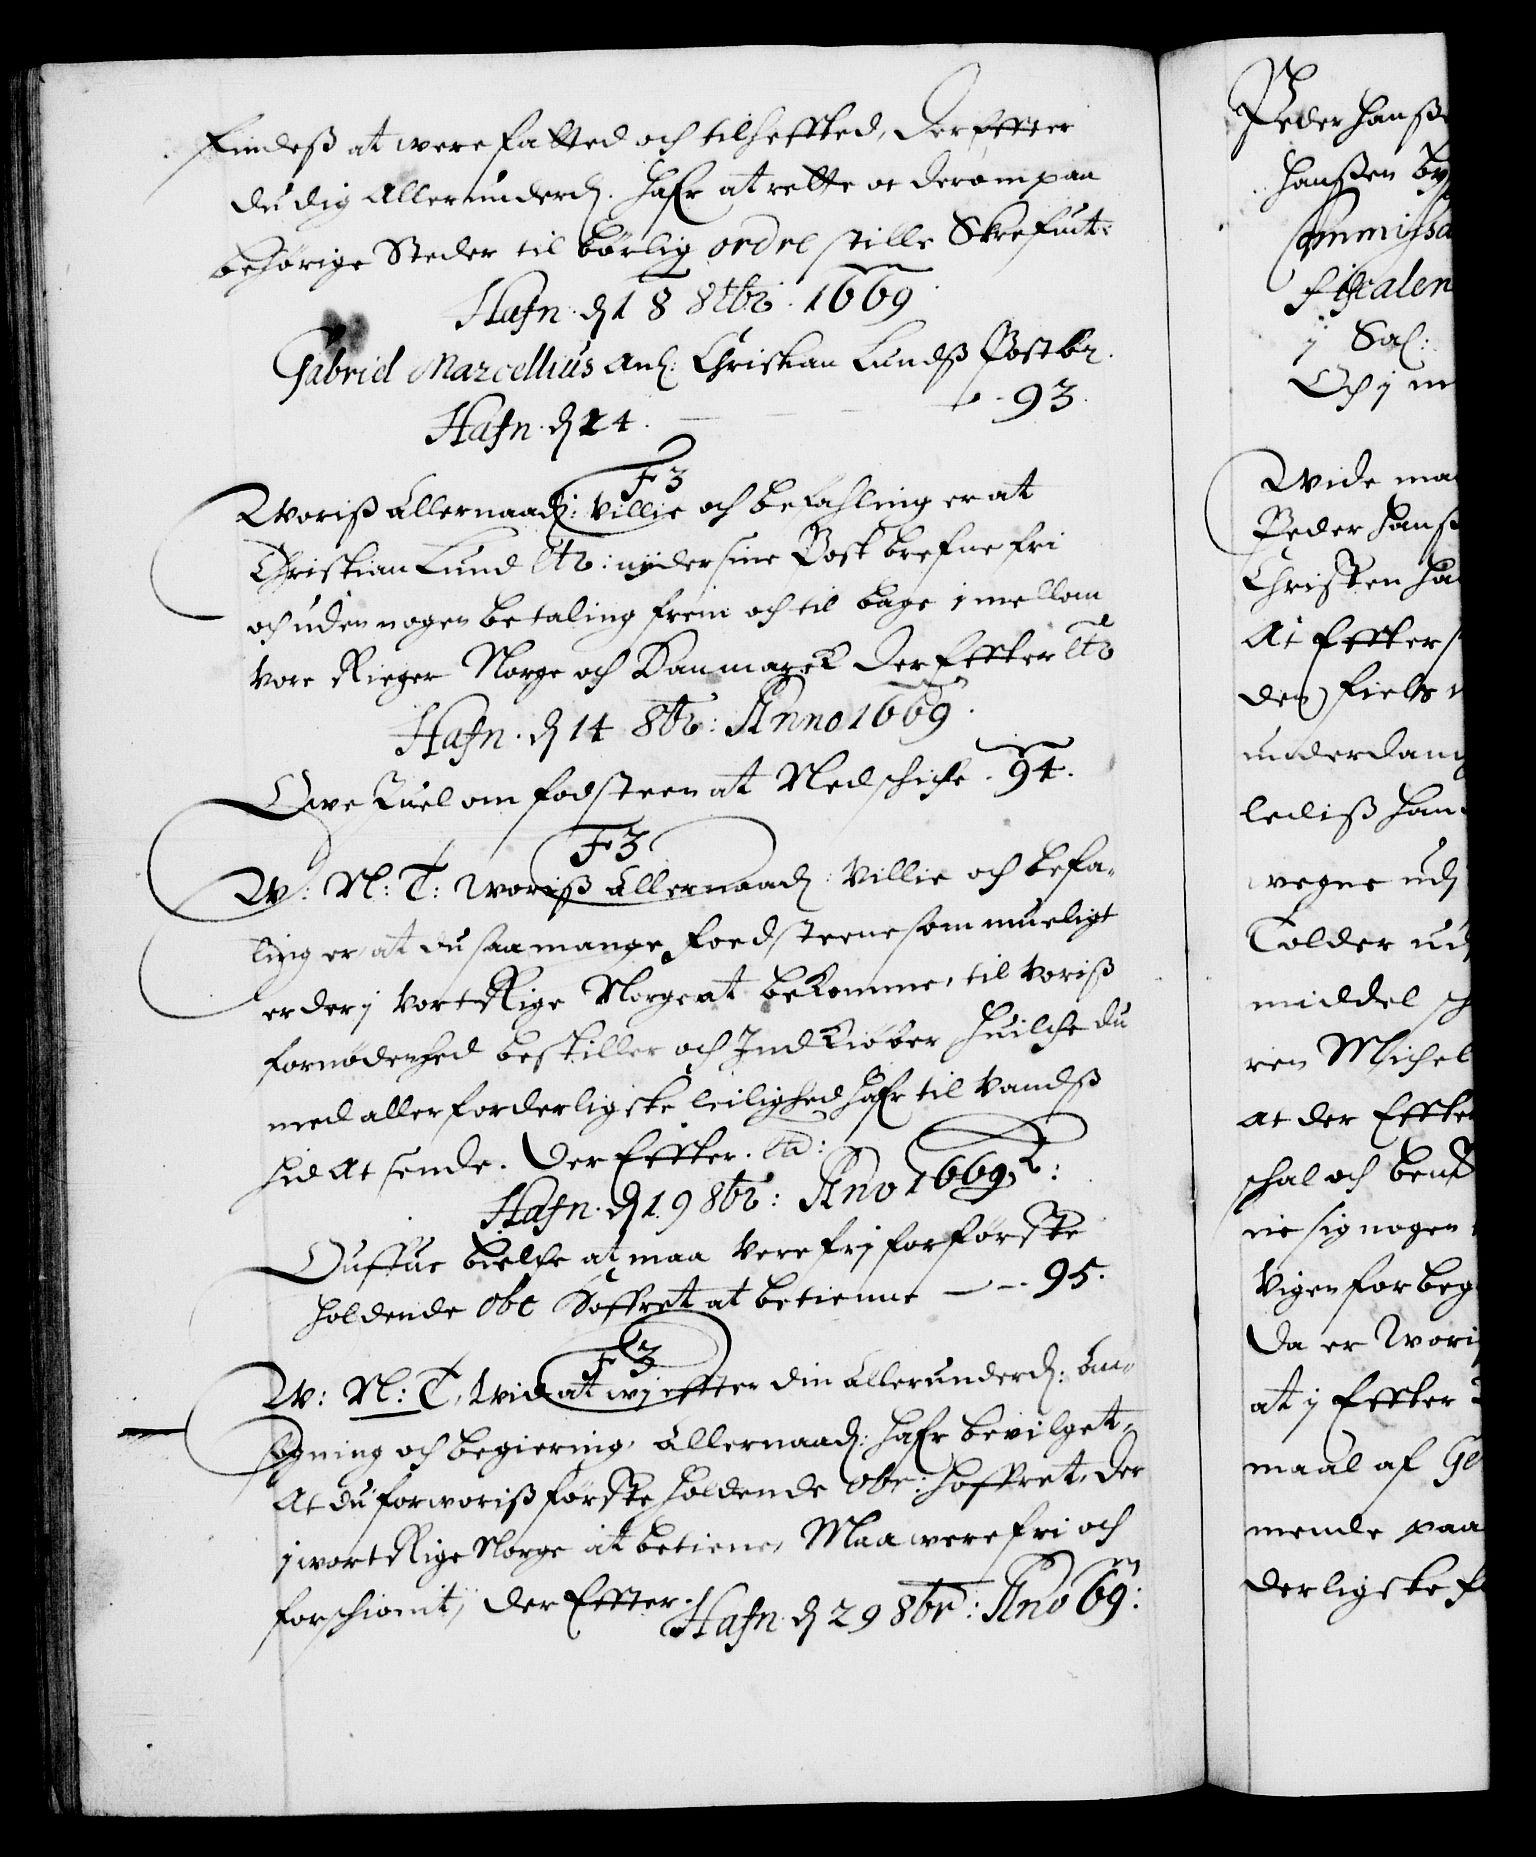 findeß at were fatted och tilheffted, Derefter
du dig Allerunderd. hafr at rette oc derom paa
behørige Steder til børlig ordre stille Skrefuit
Hafn. d 18 8tbr. 1669
Gabriel Marcellius anl: Christian Lundß Postbr.
Hafn. d 14. 93.
F3
Woriß Allernaad: Villie och befahling er at
Christian Lund etc: nyder sine Post brefne fri
och uden nogen betaling frem och til bage i mellom
Vore Rieger Norge och Danmarck Der Effter etc
Hafn. d 14 8tbr: Anno 1669.
Owe Juel om fodsteen at Nedschicke. 94.
F3
W: N: T: woriß Allernaad: Villie och befa-
ling er, at du saa mange foedsteene som mueligt
er der j Vort Rige Norge at bekomme, til Voriß
fornødenhed bestiller och Indkiøber huilche du
med aller forderligste leilighed hafr til Vandß
hid at sende. Der Effter. etc:
Hafn. d 19 8tbr: Ano 1669
Ouffue Bielke at maa Vere frj for første
holdende Obe Hoffret at betienne — 95.
F3
W: N: T, Vid at wj effter din Allerunderd: An-
søgning och begiering, Allernaad: hafr bevilget,
At du for woriß første holdende Obr: hoffret, der
j wort Rige Norge at betiene, Maa were fri och
forschiont, Der Effter.
Hafn. d 29 8br: Ano 69:
Peder Hanß
Hanßen by
Commissa
fiscalen
j Sal:
Och j
Wide ma
Peder Hanß
Christen Ha
At Effter
den fields
underdan
lediß han
vegne ud
Tolder ud
middel sch
ren Michel
At der Effter
schal och
sig nogen
Vigen for beg
Da er Wori
at j Effter
maal af
mende paa
derligste